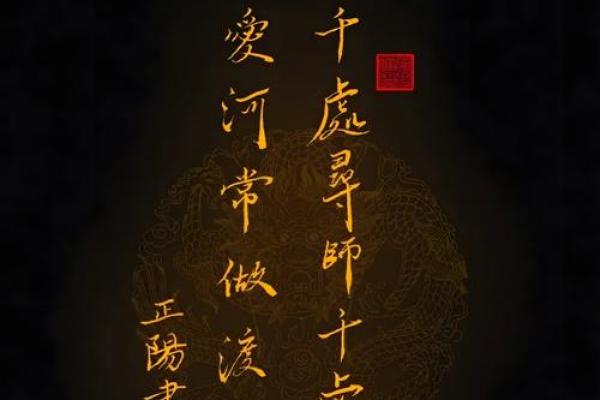 千處尋師千
愛河常做渡
正陽